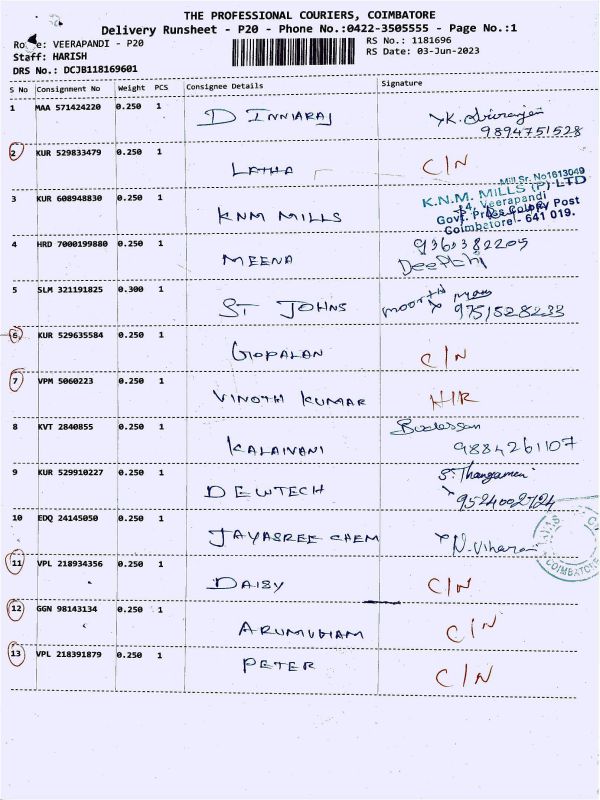 THE PROFESSIONAL COURIERS, COIMBATORE
Delivery Runsheet - P20 - Phone No.:0422-3505555 - Page No.:1
Route: VEERAPANDI - P20
RS No.: 1181696
Staff: HARISH
RS Date: 03-Jun-2023
DRS No.: DCJB118169601
S No Consignment No Weight PCS Consignee Details Signature
1 MAA 571424220 0.250 1 D INNIARAJ
9894751528
2 KUR 529833479 0.250 1 LATHA C/N
3 KUR 608948830 0.250 1 KNM MILLS
Mill Sr. No1613049
K.N.M. MILLS (P) LTD
Veerapandi
Govt. Press Colony Post
Coimbatore - 641 019.
4 HRD 7000199880 0.250 1 MEENA 9360382205
Deepthi
5 SLM 321191825 0.300 1 ST JOHNS 9751528233
6 KUR 529635584 0.250 1 GOPALAN C/N
7 VPM 5060223 0.250 1 VINOTH KUMAR H/R
8 KVT 2840855 0.250 1 KALAIVANI
9884261107
9 KUR 529910227 0.250 1 DEWTECH S. Thangamani
9524002724
10 EDQ 24145050 0.250 1 JAYASREE CHEM N. Viharan
COIMBATORE
11 VPL 218934356 0.250 1 DAISY C/N
12 GGN 98143134 0.250 1 ARUMUGHAM C/N
13 VPL 218391879 0.250 1 PETER C/N